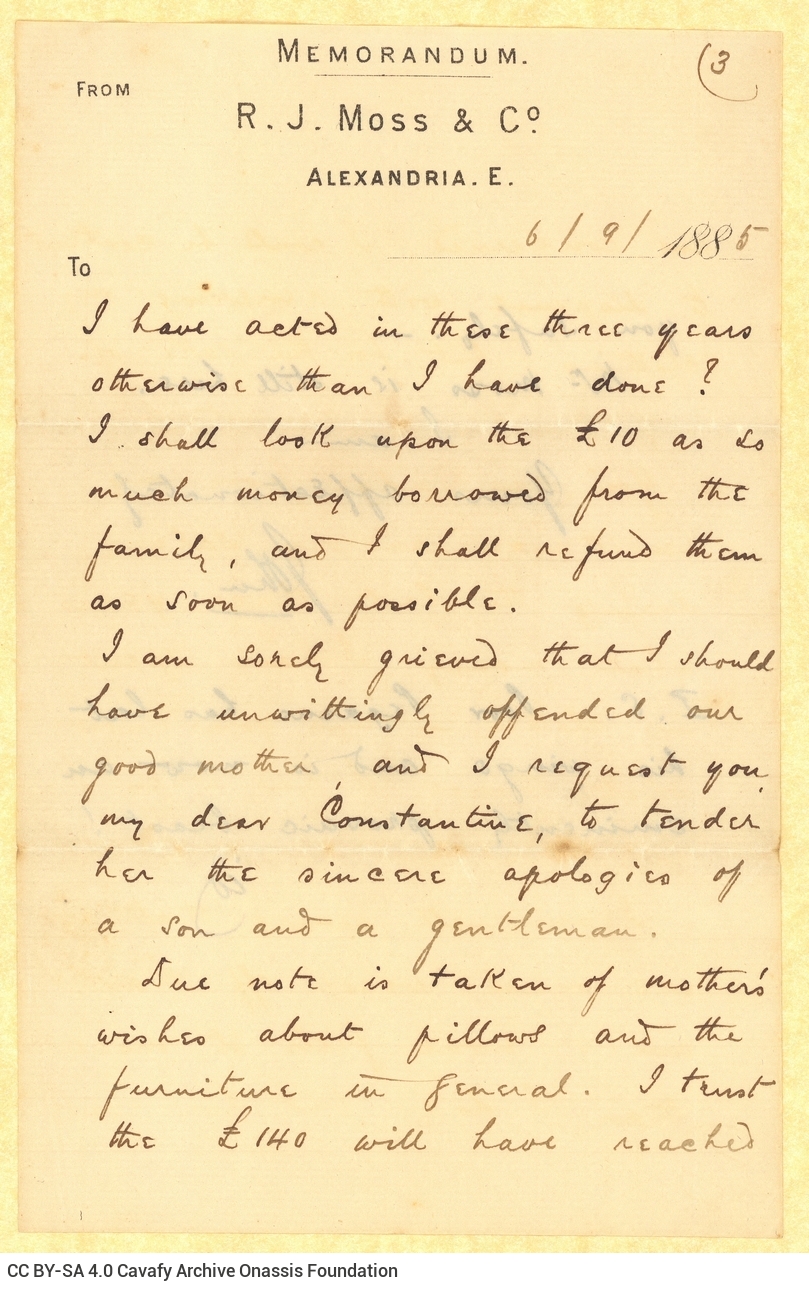 MEMORANDUM.
(3
FROM
R. J. MOSS & Cº
ALEXANDRIA. E.
6 / 9 / 1885
To
I have acted in these three years
otherwise than I have done ?
I shall look upon the £10 as so
much money borrowed from the
family, and I shall refund them
as soon as possible.
I am sorely grieved that I should
have unwittingly offended our
good mother, and I request you,
my dear Constantine, to tender
her the sincere apologies of
a son and a gentleman.
Due note is taken of mother's
wishes about pillows and the
furniture in general. I trust
the £140 will have reached
CC BY-SA 4.0 Cavafy Archive Onassis Foundation